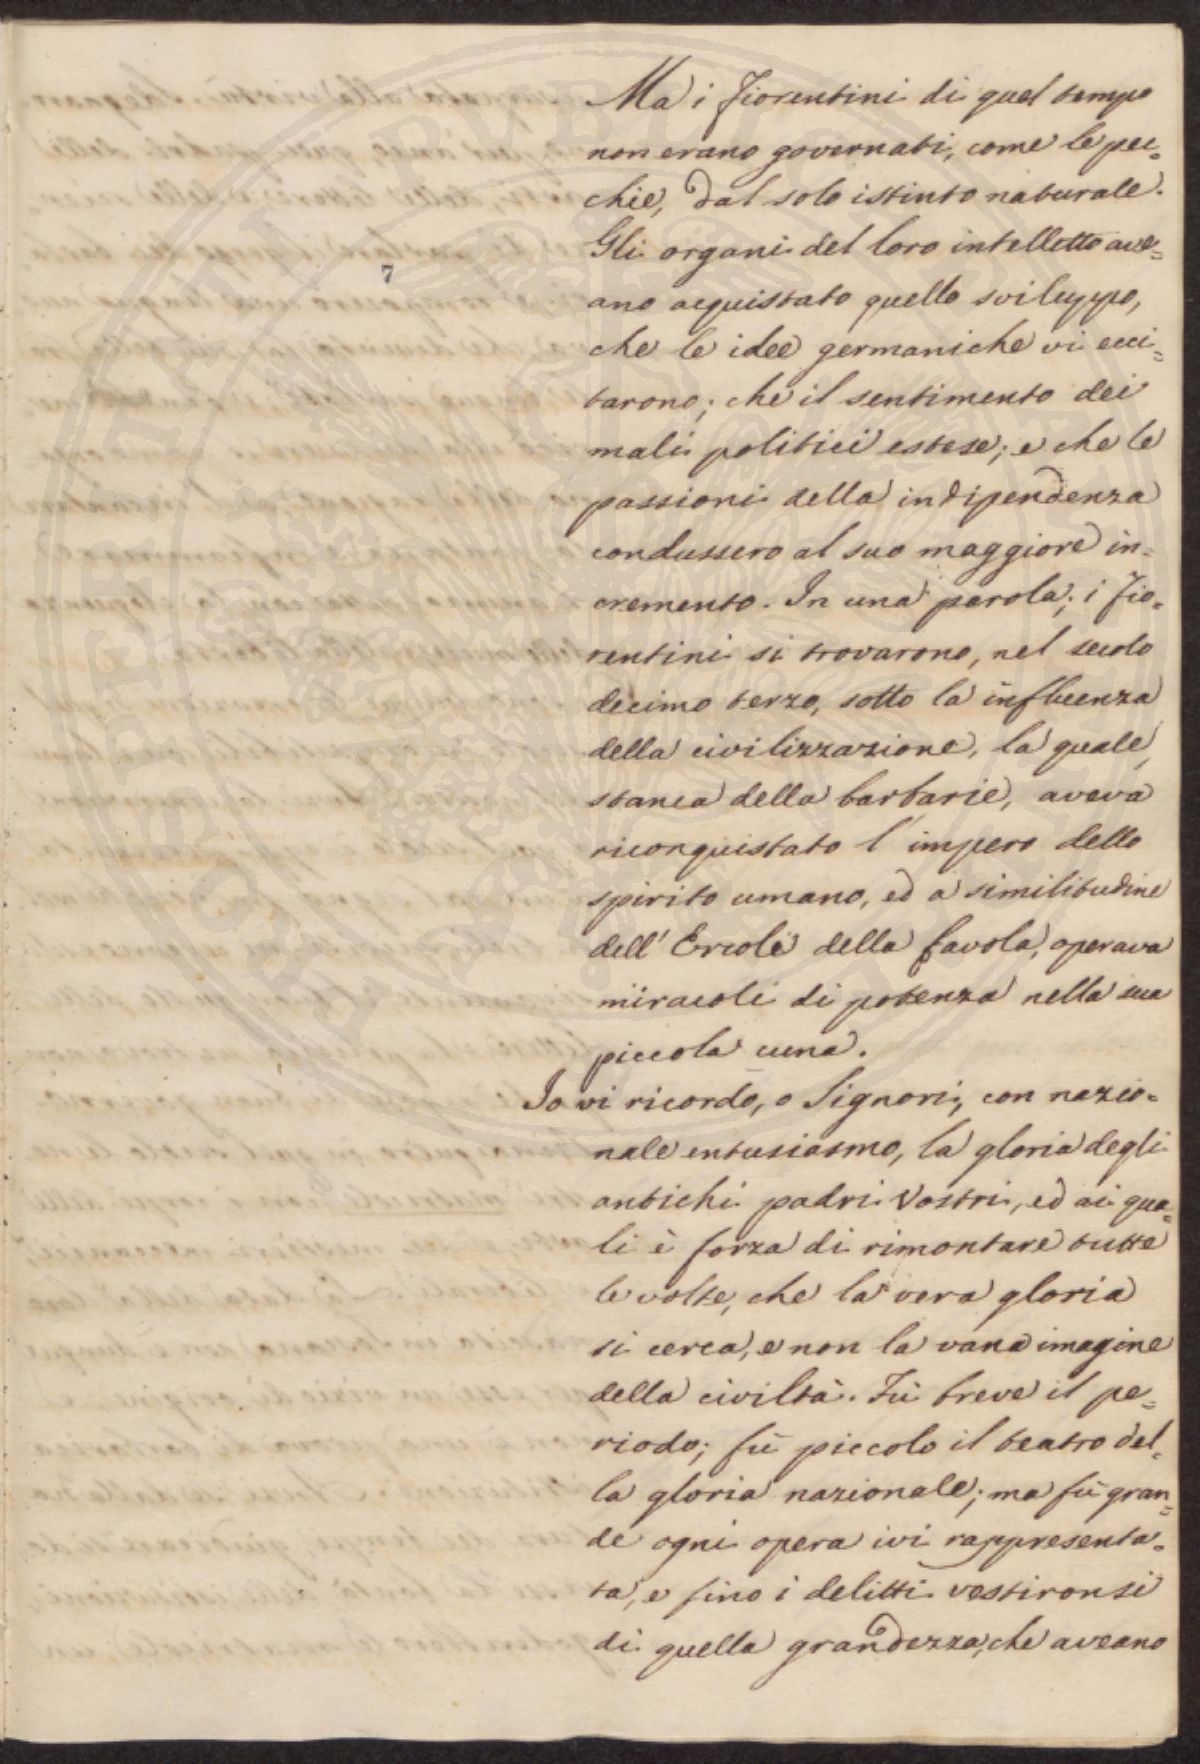 Ma i Fiorentini di quel tempo
non erano governati, come le pec-
chie, dal solo istinto naturale.
Gli organi del loro intelletto ave-
7
ano acquistato quello sviluppo,
che le idee germaniche vi ecci-
tarono; che il sentimento dei
mali politici estese; e che le
passioni della indipendenza
condussero al suo maggiore in-
cremento. In una parola; i Fio-
rentini si trovarono, nel secolo
decimo terzo, sotto la influenza
della civilizzazione, la quale,
stanca della barbarie, aveva
riconquistato l'impero dello
spirito umano, ed a similitudine
dell'Ercole della favola, operava
miracoli di potenza nella sua
piccola cuna.
Io vi ricordo, o Signori, con nazio-
nale entusiasmo, la gloria degli
antichi padri Vostri, ed ai qua-
li è forza di rimontare tutte
le volte, che la vera gloria
si cerca, e non la vana imagine
della civiltà. Fù breve il pe-
riodo; fù piccolo il teatro del-
la gloria nazionale; ma fù gran-
de ogni opera ivi rappresenta-
ta, e fino i delitti vestironsi
di quella grandezza, che aveano